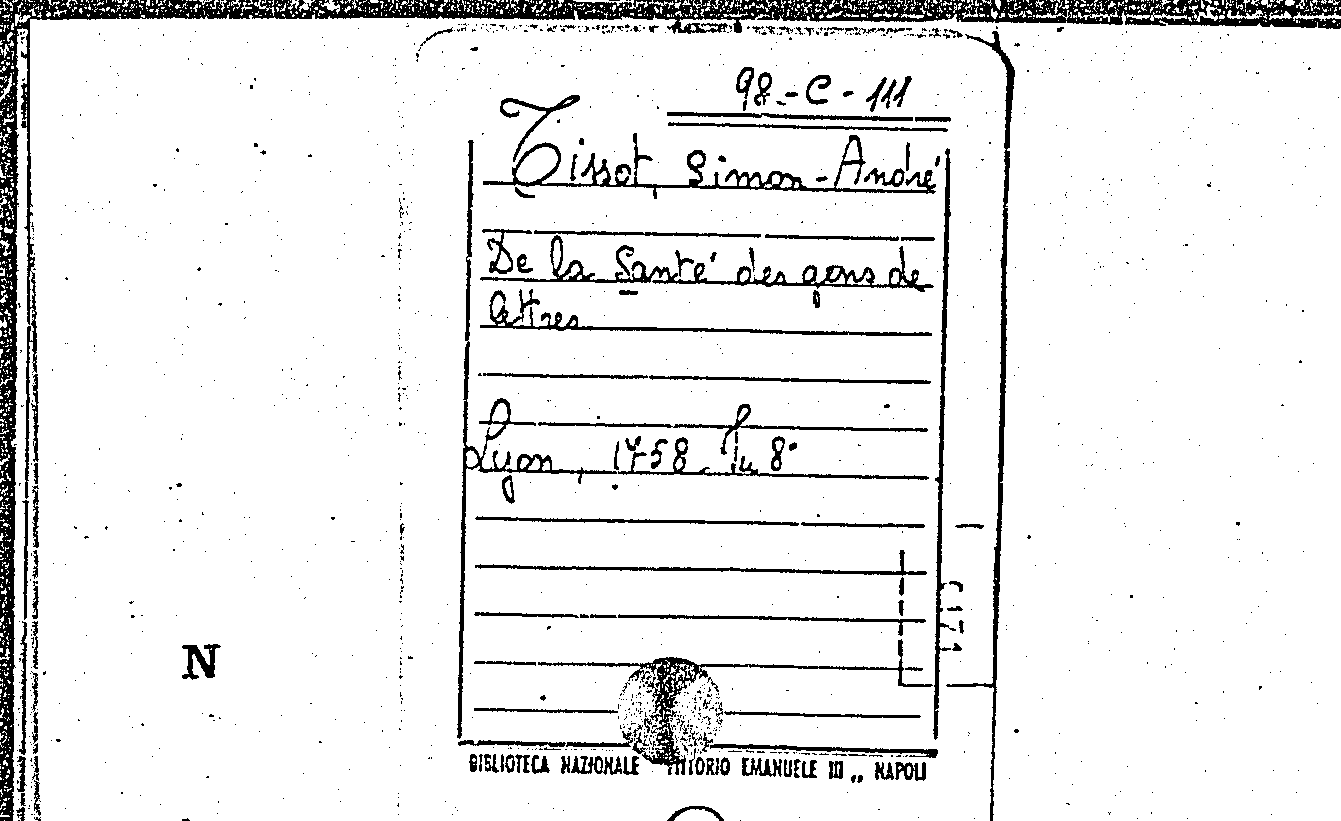 98.-C-111
Tissot, Simon-André
De la Santé des gens de
lettres
Lyon, 1758. In 8°
N
BIBLIOTECA NAZIONALE VITTORIO EMANUELE III „ NAPOLI